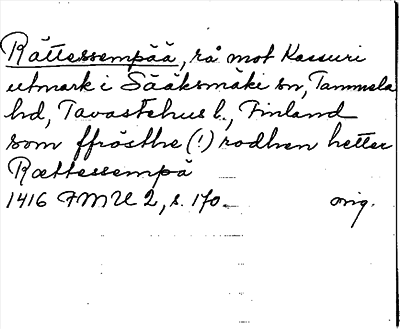 Rättessempää, rå mot Kassuri
utmark i Sääksmäki sn, Tammela
hd, Tavastehus l., Finland
som ffrösthe (!) rodhen hetter
Rættessempä
1416 FMU 2, s. 170. orig.